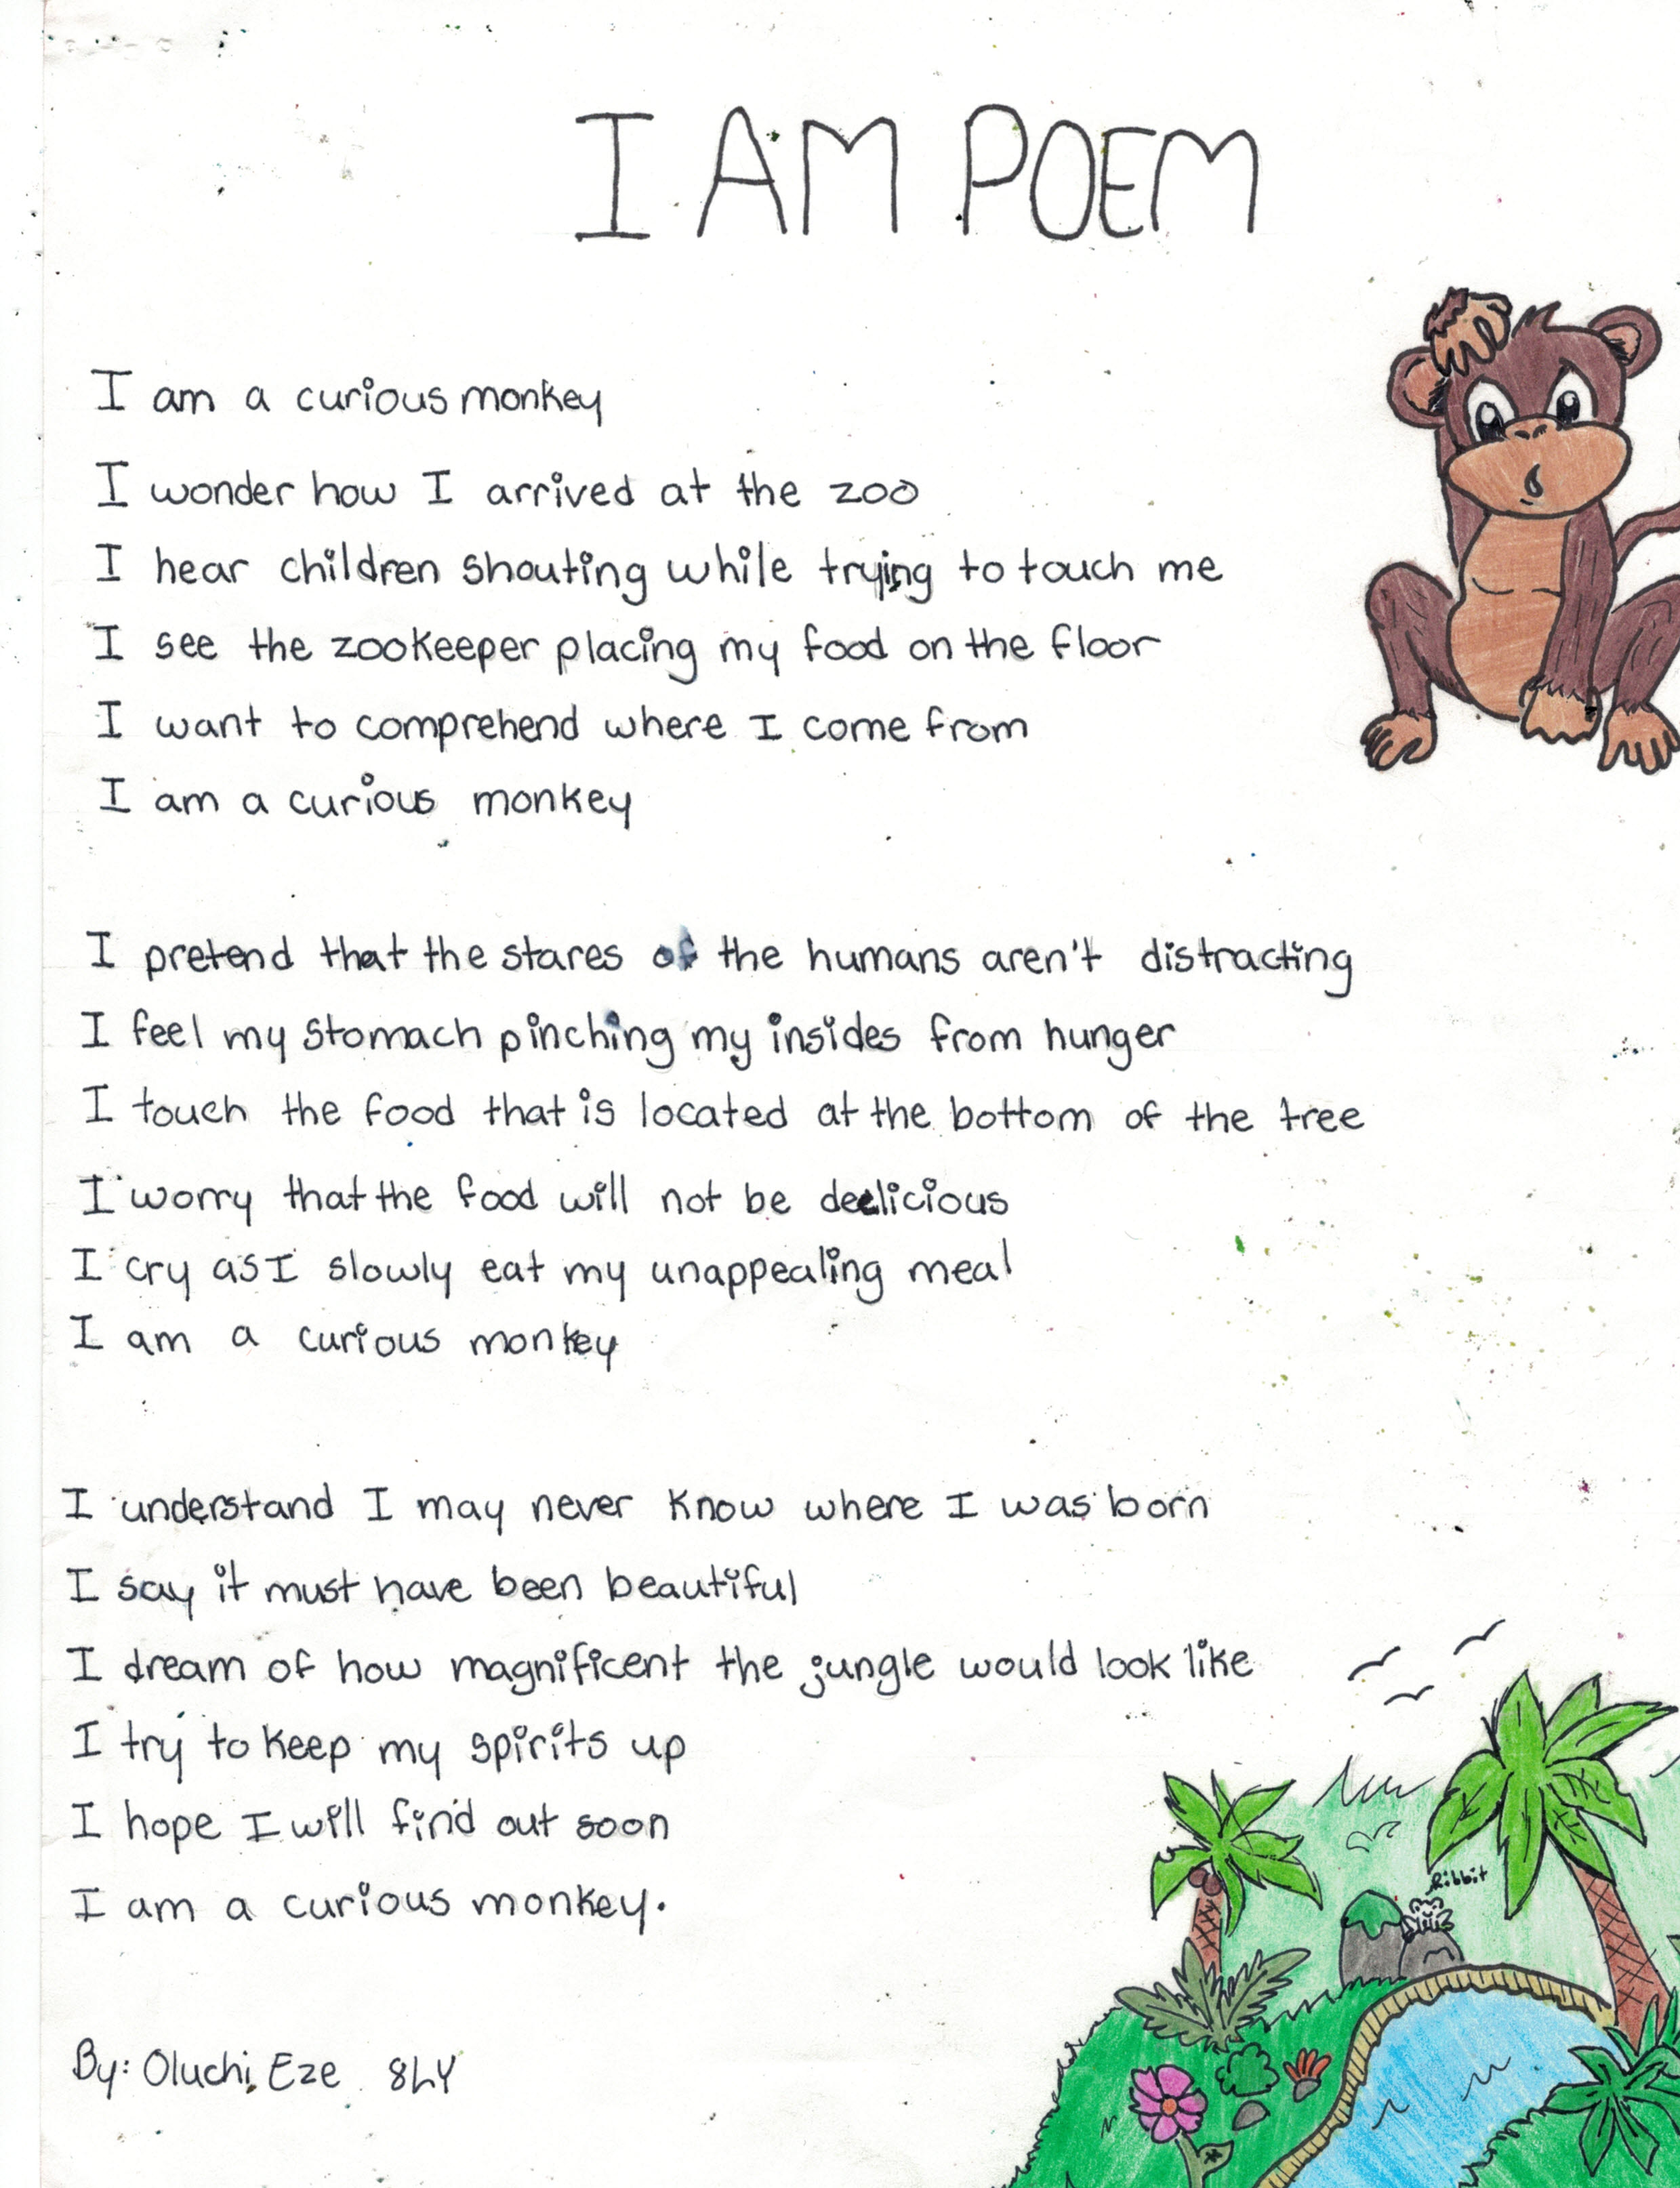 I AM POEM
I am a curious monkey
I wonder how I arrived at the zoo
I hear children shouting while trying to touch me
I see the zookeeper placing my food on the floor
I want to comprehend where I come from
I am a curious monkey
I pretend that the stares of the humans aren't distracting
I feel my stomach pinching my insides from hunger
I touch the food that is located at the bottom of the tree
I worry that the food will not be deelicious
I cry as I slowly eat my unappealing meal
I am a curious monkey
I understand I may never know where I was born
I say it must have been beautiful
I dream of how magnificent the jungle would look like
I try to keep my spirits up
I hope I will find out soon
I am a curious monkey.
Ribbit
By: Oluchi Eze 8LY